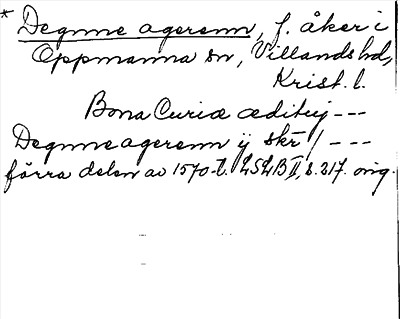 * Degnne ageremn, f. åker i
Oppmanna sn, Villands hd,
Krist. l.
Bona Curiæ ædituj ---
Degnneageremn ij skr / ---
förra delen av 1570-t. LSLB II, s. 217. orig.